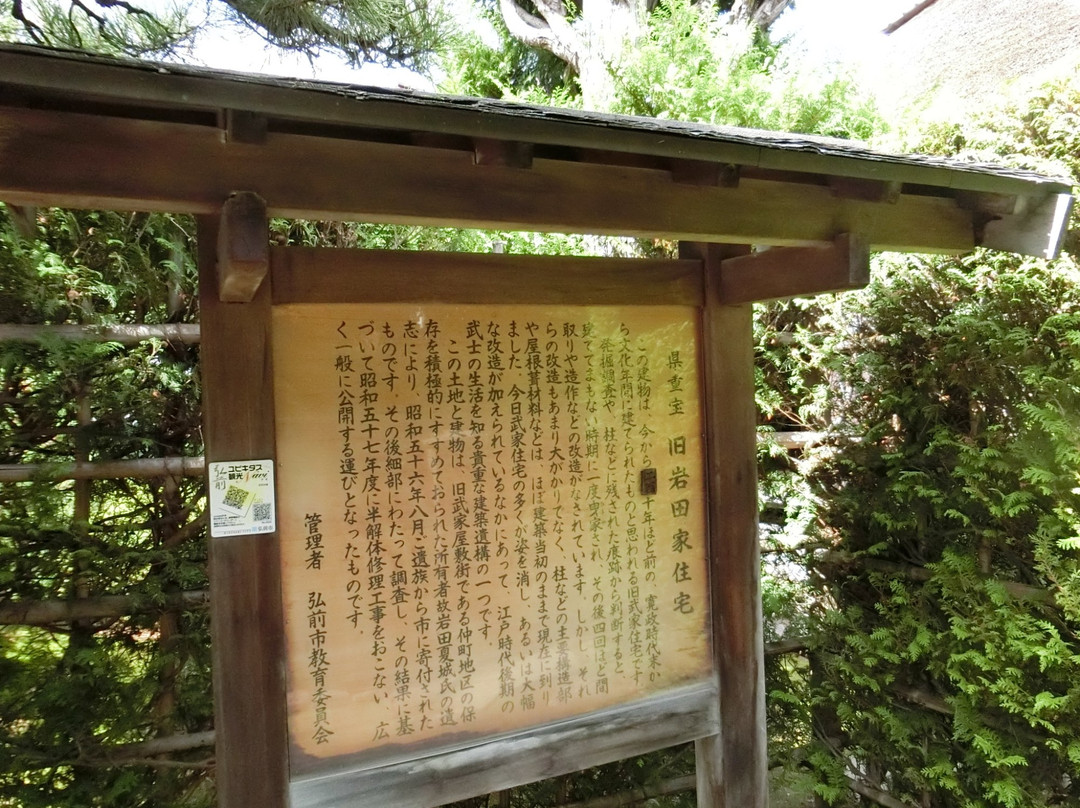 県重宝 旧岩田家住宅
この建物は、今から　十年ほど前の、寛政時代末か
ら文化年間に建てられたものと思われる旧武家住宅です。
発掘調査や、柱などに残された痕跡から判断すると、
建ててまもない時期に一度曳家され、その後四回ほど間
取りや造作などの改造がなされています。しかし、それ
らの改造もあまり大がかりでなく、柱などの主要構造部
や屋根葺材料などは、ほぼ建築当初のまま現在に到り
ました。今日武家住宅の多くが姿を消し、あるいは大幅
な改造が加えられているなかにあって、江戸時代後期の
武士の生活を知る貴重な建築遺構の一つです。
この土地と建物は、旧武家屋敷街である仲町地区の保
存を積極的にすすめておられた所有者故岩田夏城氏の遺
志により、昭和五十六年八月ご遺族から市に寄付された
ものです。その後細部にわたって調査し、その結果に基
づいて昭和五十七年度に半解体修理工事をおこない、広
く一般に公開する運びとなったものです。
管理者 弘前市教育委員会
弘前
ユビキタス
観光ナビ